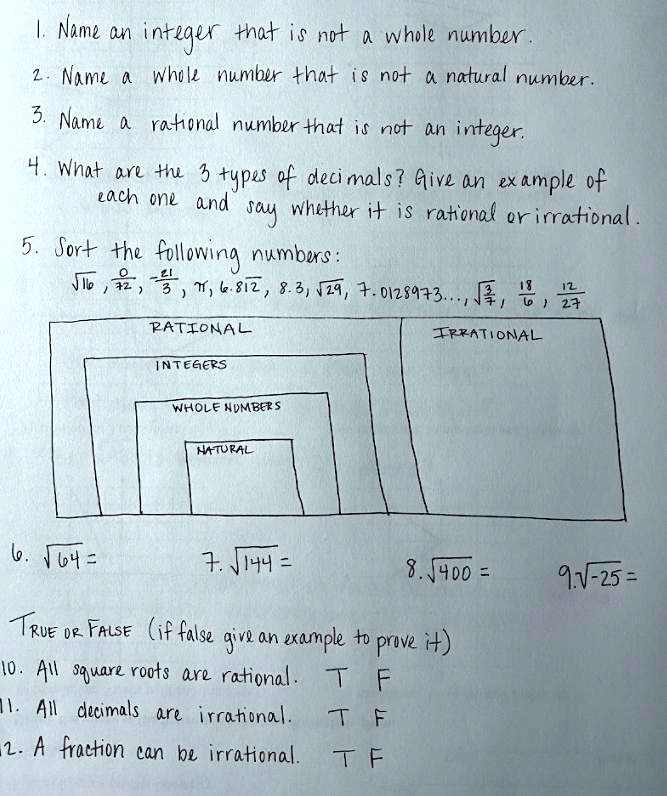 1. Name an integer that is not a whole number.
2. Name a whole number that is not a natural number.
3. Name a rational number that is not an integer.
4. What are the 3 types of decimals? Give an example of
each one and say whether it is rational or irrational.
5. Sort the following numbers:
√16, 0/72, -21/3, π, 6.81̅2̅, 8.3, √29, 7.0128973..., √(3/7), 18/6, 12/27
RATIONAL IRRATIONAL
INTEGERS
WHOLE NUMBERS
NATURAL
6. √64 = 7. √144 = 8. √400 = 9. √-25 =
TRUE OR FALSE (if false give an example to prove it)
10. All square roots are rational. T F
11. All decimals are irrational. T F
2. A fraction can be irrational. T F